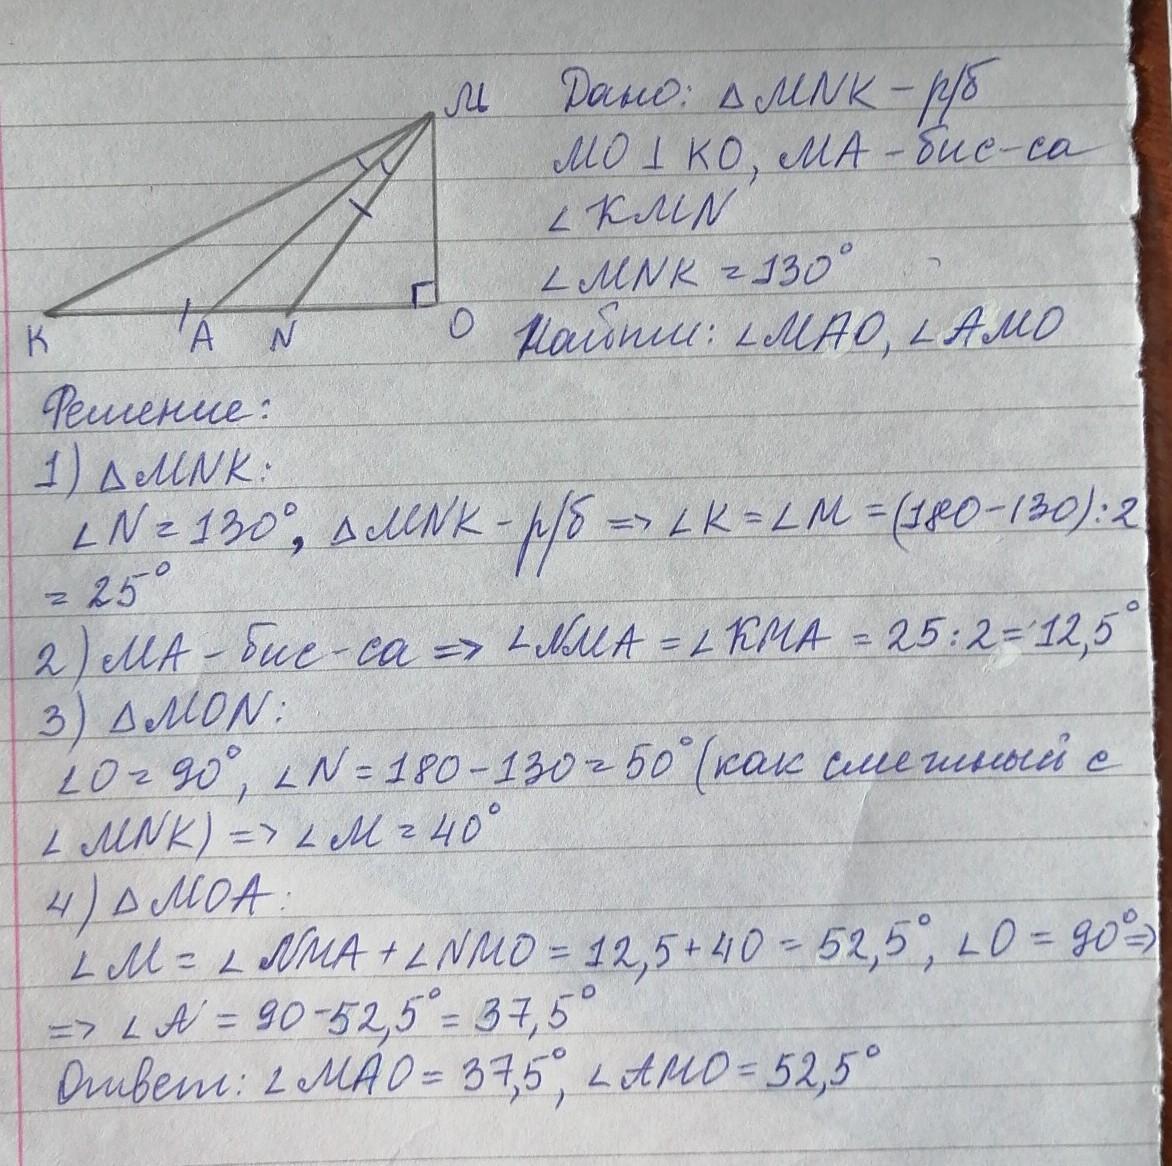 M
K
A
N
O
Дано: △MNK - р/б
MO⊥KO, MA - бис-са
∠KMN
∠MNK = 130°
Найти: ∠MAO, ∠AMO
Решение:
1) △MNK:
∠N = 130°, △MNK - р/б => ∠K = ∠M = (180-130):2
= 25°
2) MA - бис-са => ∠NMA = ∠KMA = 25:2 = 12,5°
3) △MON:
∠O = 90°, ∠N = 180-130 = 50° (как смежный с
∠MNK) => ∠M = 40°
4) △MOA:
∠M = ∠NMA + ∠NMO = 12,5+40 = 52,5°, ∠O = 90° =>
=> ∠A = 90-52,5° = 37,5°
Ответ: ∠MAO = 37,5°, ∠AMO = 52,5°